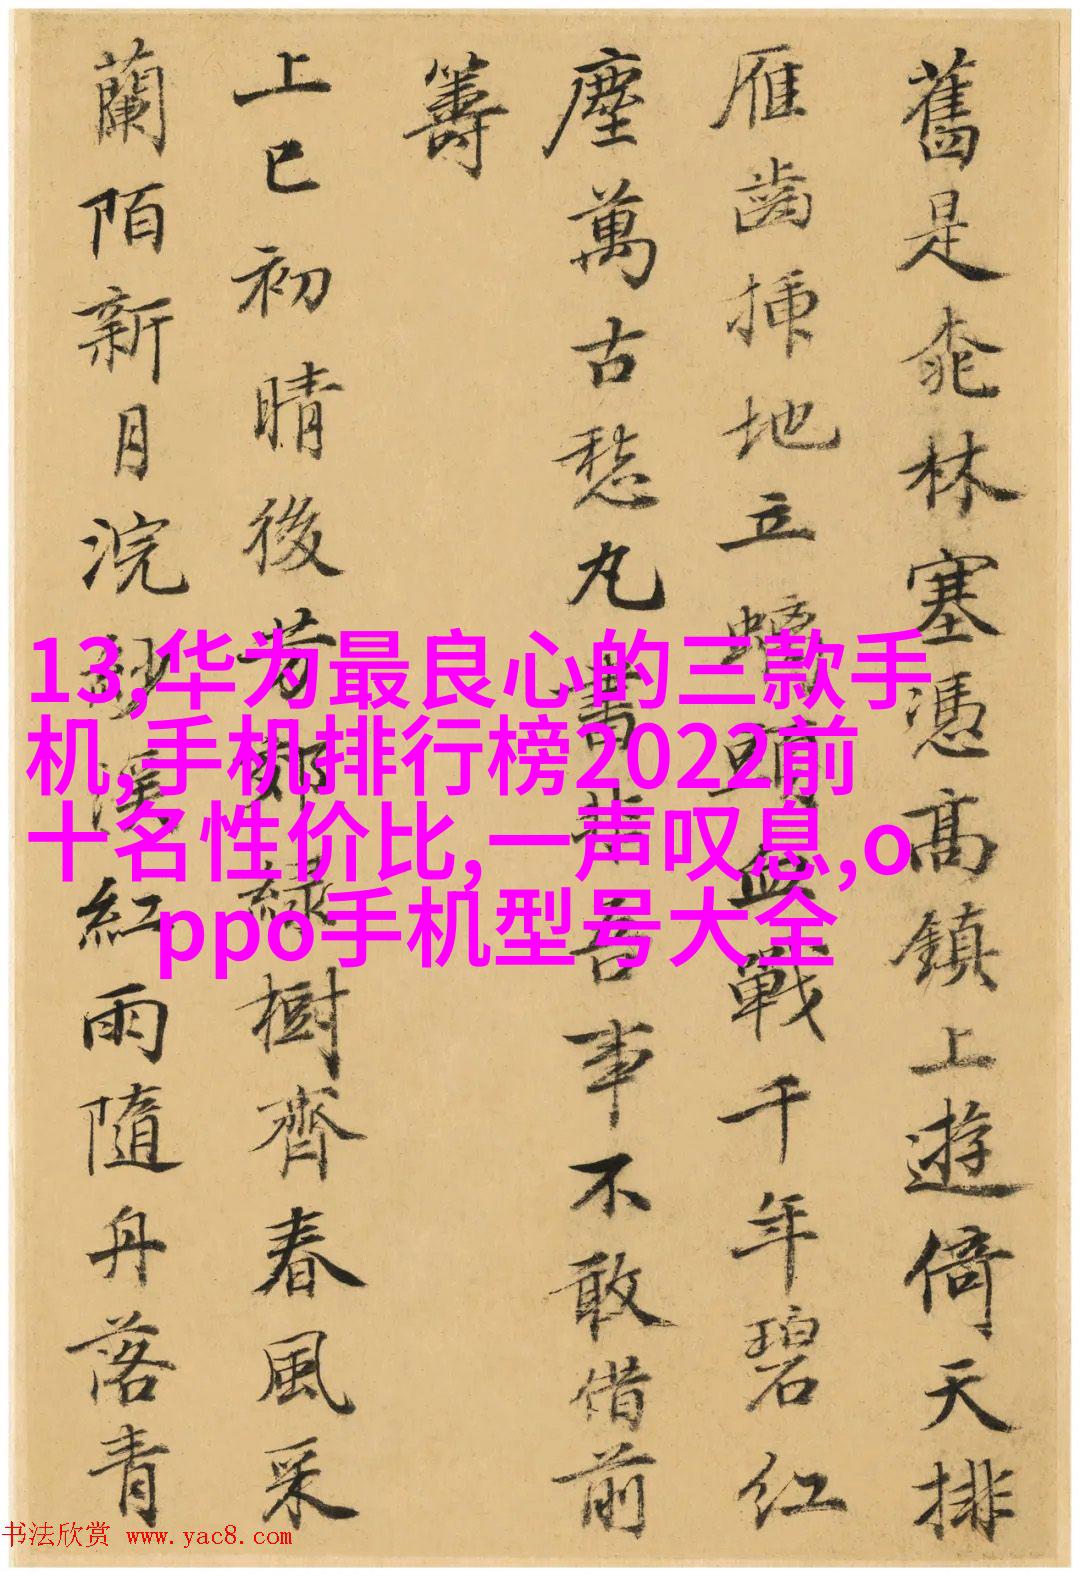 舊是桃林塞憑高鎮上遊倚天排
雁齒插地立螭頭血戰千年碧紅
塵萬古愁丸書昔吾事不敢借前
籌
上巳初晴後芳郊綠樹齊春風采
蘭陌新月浣紗溪紅雨隨舟落青
13,华为最良心的三款手
机,手机排行榜2022前
十名性价比,一声叹息,o
ppo手机型号大全
书法欣赏 www.yac8.com